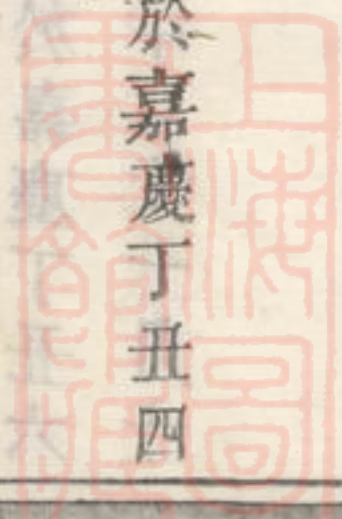 於嘉慶丁丑四
上海圖書館藏